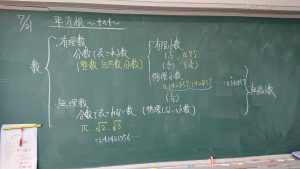 7/1 平方根 ~その4~
数
有理数
分数で表せる数
(整数 自然数 分数)
有限小数
1.5 0.75
循環小数
0.142857142857
(1/7)
無限小数
無理数
分数で表せない数 (循環しない小数)
π √2 √3 …
=1.41421356…